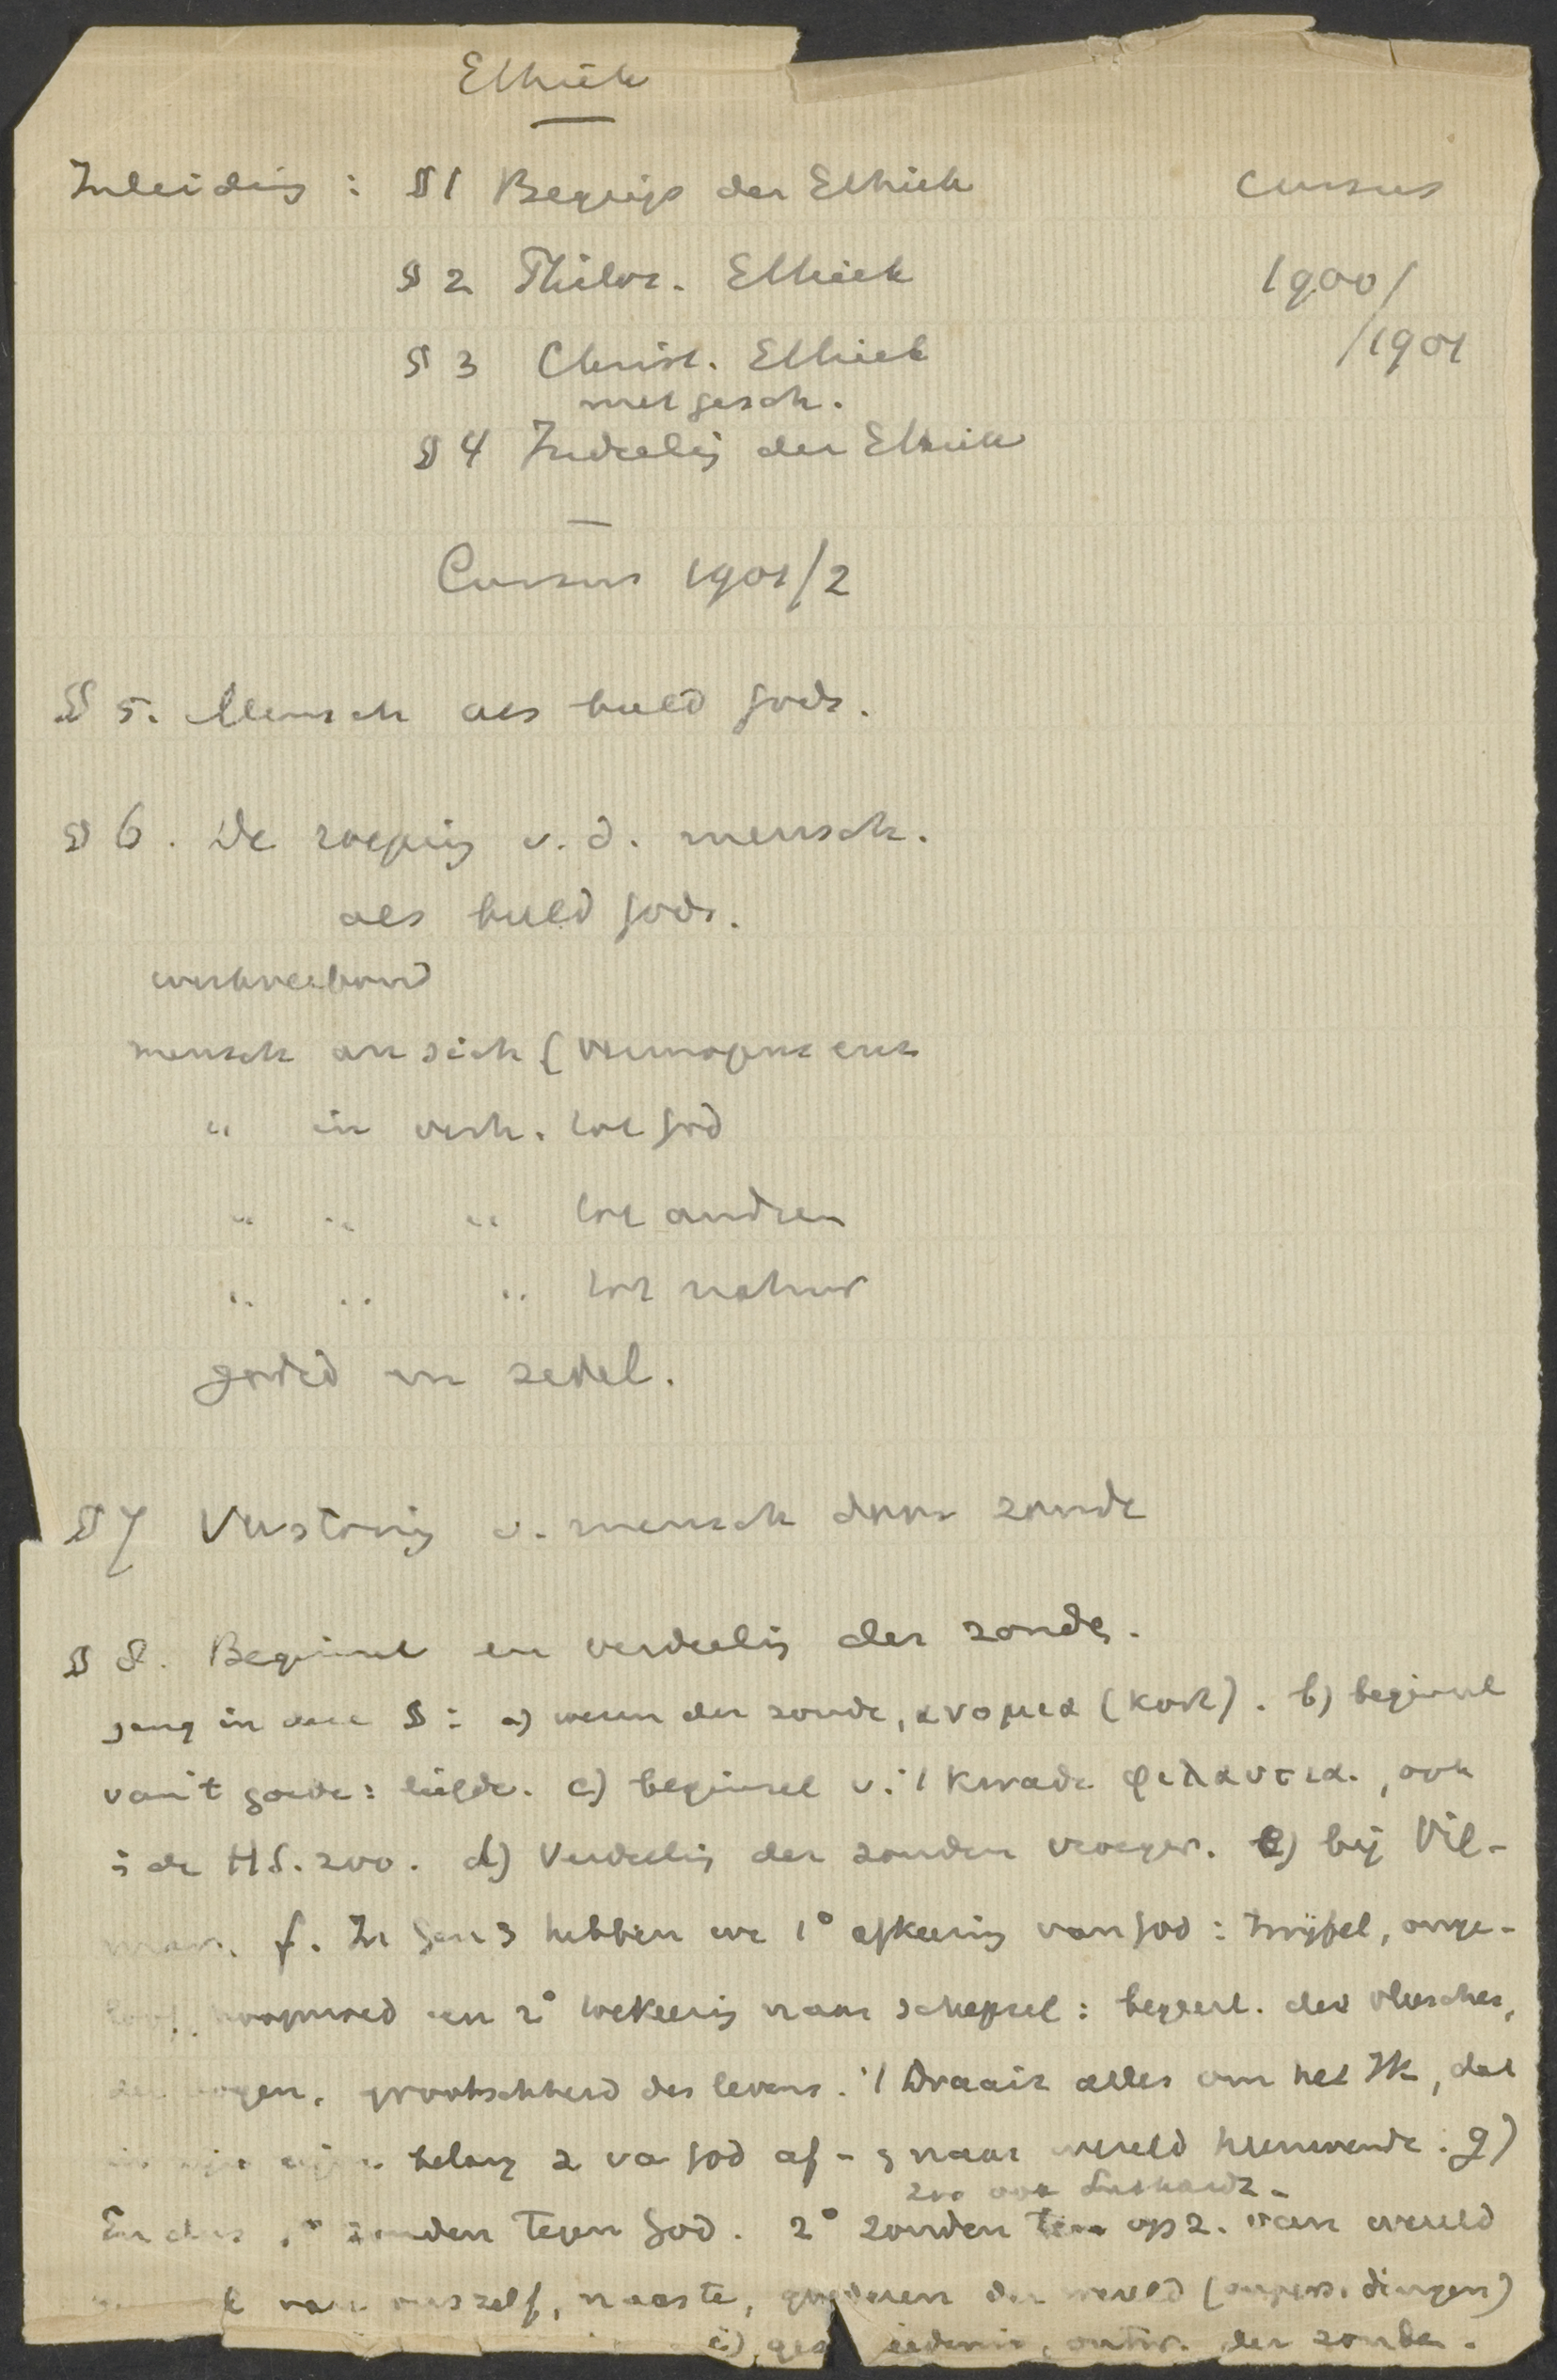 Ethiek
Inleiding : § 1 Begrip der Ethiek
Cursus
§ 2 Philos. Ethiek
1900/
§ 3 Christ. Ethiek
/1901
met gesch.
§ 4 Indeeling der Ethiek
Cursus 1901/2
§ 5. Mensch als beeld Gods.
§ 6. De roeping v. d. mensch.
als beeld Gods.
werkverbond
mensch an sich (vermogens enz
" in verh. tot God
" " " tot andren
" " " tot natuur
godsd en zedel.
§ 7 Verstoring v. mensch door zonde
§ 8. Beginsel en verdeeling der zonde.
gang in deze § : a) wezen der zonde, ανομια (kort). b) beginsel
van 't goede : liefde. c) beginsel v. 't kwade φιλαυτια., ook
i de H S. zoo. d) Verdeeling der zonden vroeger. e) bij Vil-
mar. f. In Gen 3 hebben we 1° afkeering van God : twijfel, onge-
loof, hoogmoed en 2° toekeering naar schepsel : begeerl. des vleesches,
der oogen, grootschheid des levens. 't Draait alles om het Ik, dat
belang z va God af - z naar wereld heenwende. g)
zoo ook Luthardt -
En dus 1° zonden tegen God. 2° zonden op z. van wereld
van onszelf, naaste, goederen der wereld (onpers. dingen)
i) geschiedenis, ontw. der zonde.